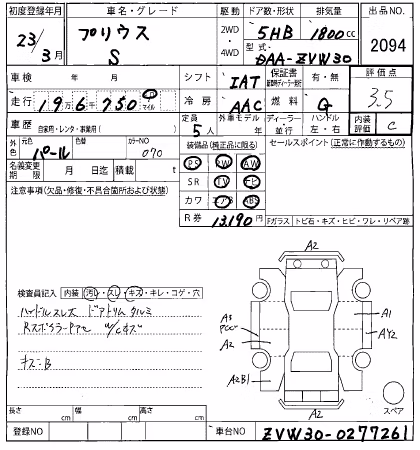 初度登録年月 車名・グレード 駆動 ドア数・形状 排気量 出品NO.
23/3月 プリウス S 2WD・4WD 5HB 1800cc 2094
型式 DAA-ZVW30
車検 年 月 シフト IAT 保証書 有・無 評価点 3.5
走行 19万6千750 マイル 冷房 AAC 燃料 G
車歴 自家用・レンタ・事業用( ) 定員 5人 外車モデル 年 ディーラー・並行 ハンドル 左・右 内装評価 C
外色 元色 パール 色替 カラーNO 070
装備品(純正品に限る) セールスポイント(正常に作動するもの)
PS PW AW
名義変更期限 月 日迄 積載 t
SR TV ナビ
注意事項(欠品・修復・不具合箇所および状態)
カワ エアB ABS
R券 13,190円
Fガラス トビ石・キズ・ヒビ・ワレ・リペア跡
A2
検査員記入 内装 汚レ・スレ・キズ・キレ・コゲ・穴
ハンドルスレ大 ドアトリムタルミ
RスポイラーアアPマ
キズ:B
A3
A2
A1
AY2
A2B1
A2
スペア
長さ cm 幅 cm 高さ cm
登録NO 車台NO ZVW30-0277261